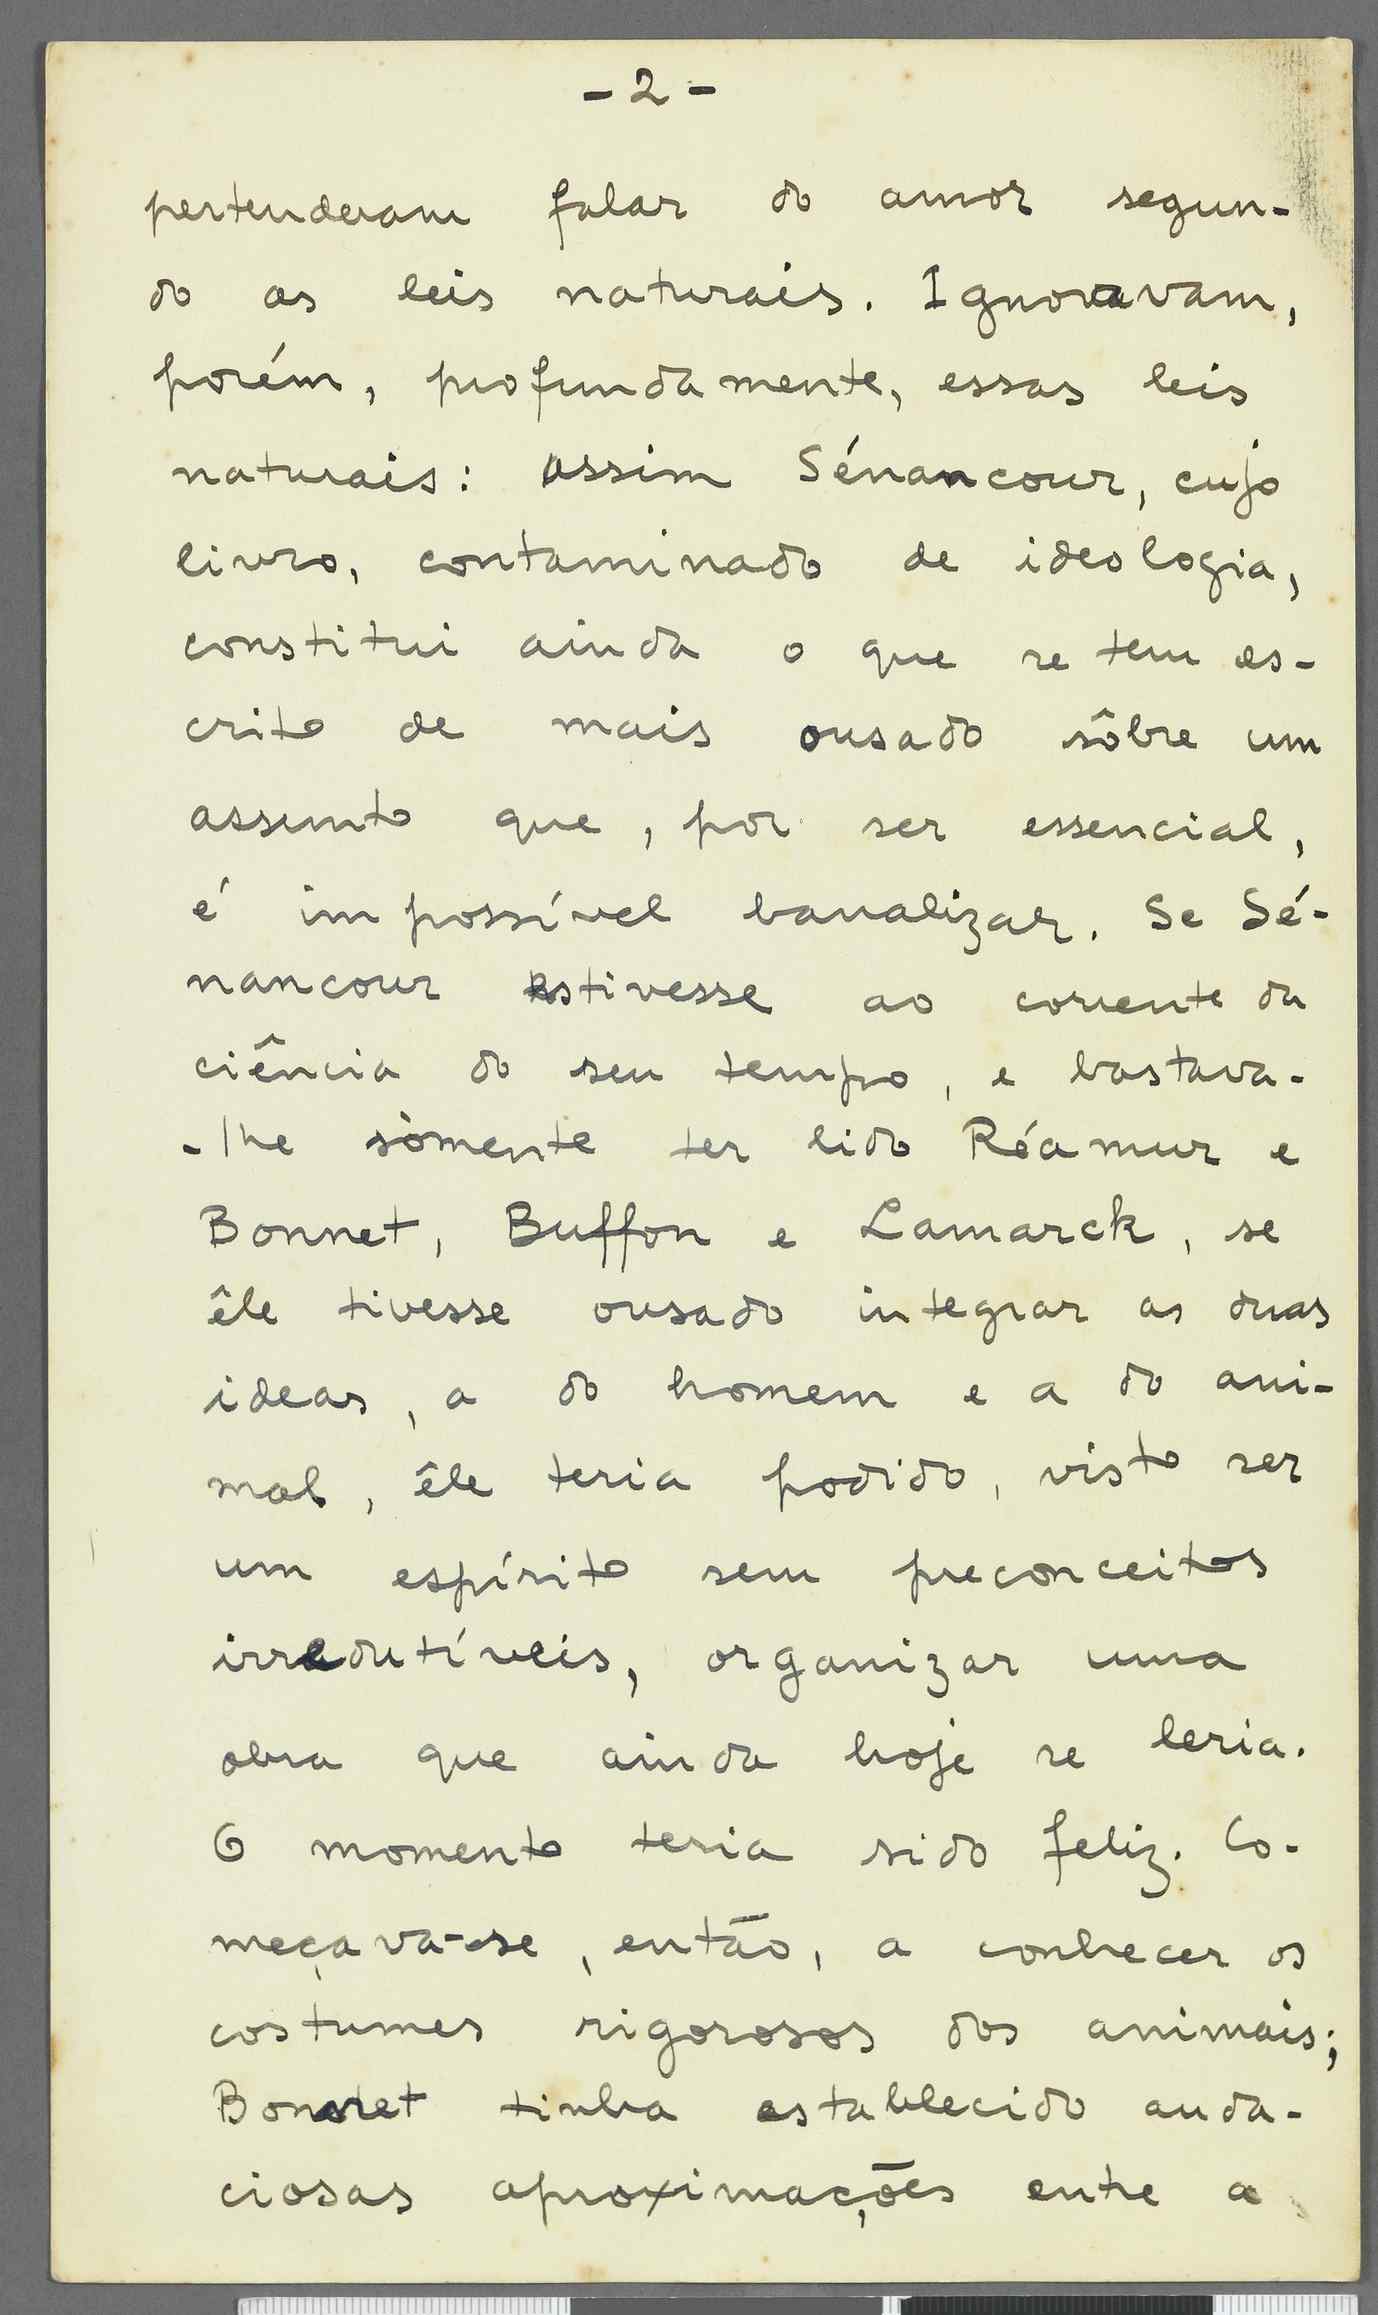 - 2 -
pertenderam falar do amor segun-
do as leis naturais. Ignoravam,
porém, profundamente, essas leis
naturais: assim Sénancour, cujo
livro, contaminado de ideologia,
constitui ainda o que se tem es-
crito de mais ousado sôbre um
assunto que, por ser essencial,
é impossível banalizar. Se Sé-
nancour estivesse ao corrente da
ciência do seu tempo, e bastava-
-lhe sòmente ter lido Réamur e
Bonnet, Buffon e Lamarck, se
êle tivesse ousado integrar as duas
ideas, a do homem e a do ani-
mal, êle teria podido, visto ser
um espírito sem preconceitos
irredutíveis, organizar uma
obra que ainda hoje se leria.
O momento teria sido feliz. Co-
meçava-se, então, a conhecer os
costumes rigorosos dos animais;
Bonnet tinha establecido auda-
ciosas aproximações entre a